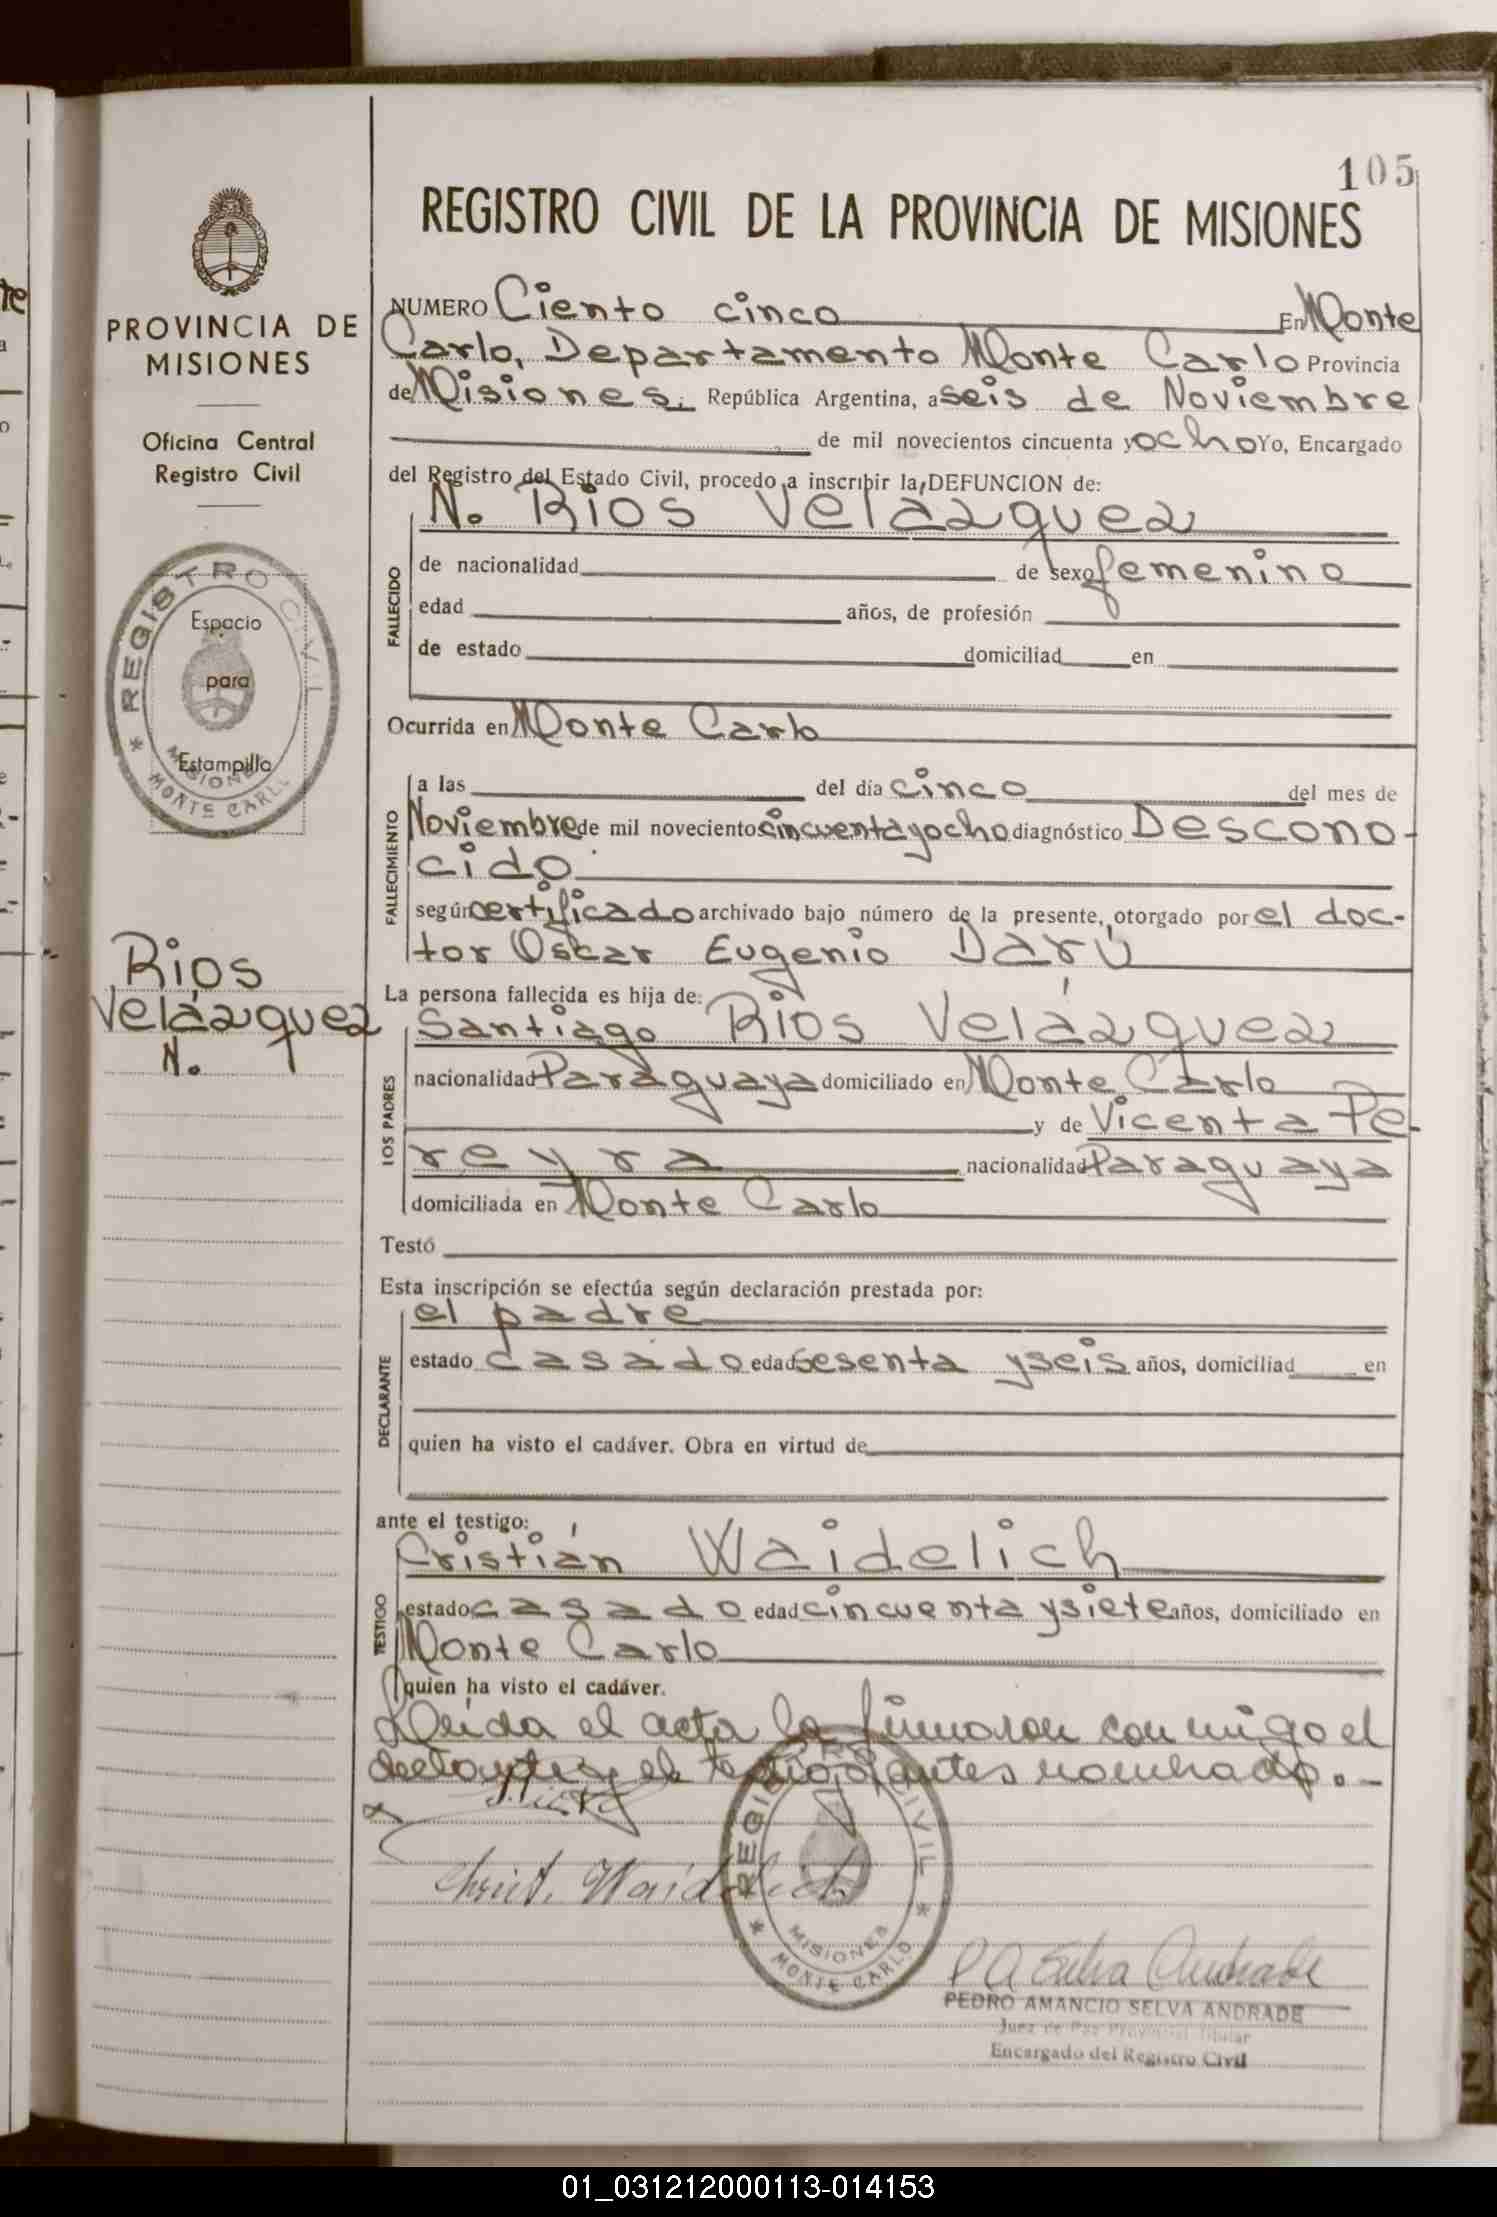 105
REGISTRO CIVIL DE LA PROVINCIA DE MISIONES
PROVINCIA DE
MISIONES
Oficina Central
Registro Civil
REGISTRO CIVIL
Espacio
para
Estampilla
MISIONES
* MONTE CARLO
Rios
Velázquez
N.
NUMERO Ciento cinco En Monte
Carlo, Departamento Monte Carlo Provincia
de Misiones. República Argentina, a seis de Noviembre
de mil novecientos cincuenta y ocho Yo, Encargado
del Registro del Estado Civil, procedo a inscribir la DEFUNCION de:
N. Rios Velázquez
FALLECIDO
de nacionalidad de sexo femenino
edad años, de profesión
de estado domiciliad en
Ocurrida en Monte Carlo
FALLECIMIENTO
a las del día cinco del mes de
Noviembre de mil novecientos cincuenta y ocho diagnóstico Descono-
cido.
según certificado archivado bajo número de la presente, otorgado por el doc-
tor Oscar Eugenio Darú
La persona fallecida es hija de:
LOS PADRES
Santiago Rios Velázquez
nacionalidad Paraguaya domiciliado en Monte Carlo
y de Vicenta Pe-
reyra nacionalidad Paraguaya
domiciliada en Monte Carlo
Testó
Esta inscripción se efectúa según declaración prestada por:
DECLARANTE
el padre
estado casado edad sesenta y seis años, domiciliad en
quien ha visto el cadáver. Obra en virtud de
ante el testigo:
TESTIGO
Cristián Waidelich
estado casado edad cincuenta y siete años, domiciliado en
Monte Carlo
quien ha visto el cadáver.
Leida el acta la firmaron conmigo el
declarante y el testigo antes nombrado.-
Christ. Waidelich
REGISTRO CIVIL
MISIONES
* MONTE CARLO *
P A Selva Andrade
PEDRO AMANCIO SELVA ANDRADE
Juez de Paz Provincial Titular
Encargado del Registro Civil
01_031212000113-014153